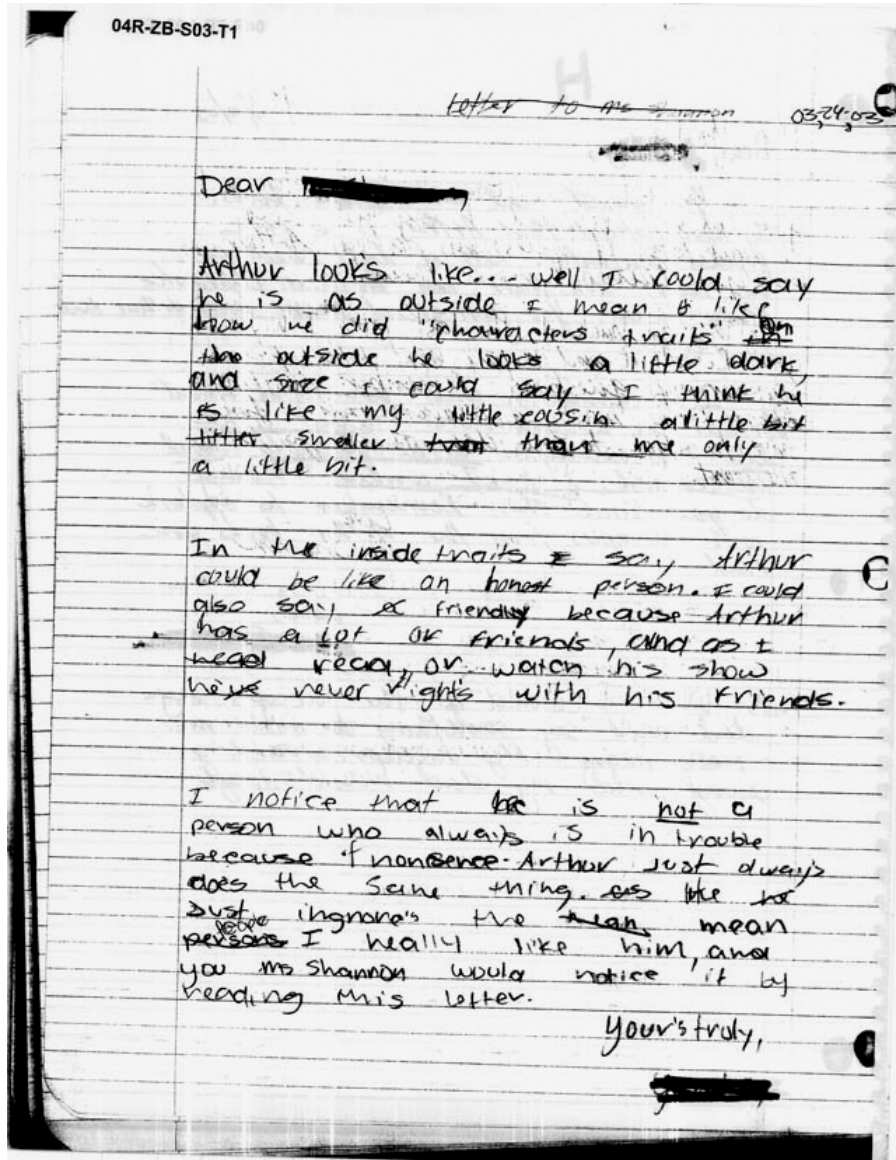 04R-ZB-S03-T1
Letter to ms shannon
03,24,03
Dear
Arthur looks like... well I could say
he is as outside I mean like
know we did "characters traits" on
the outside he looks a little dark,
and size I could say I think he
is like my little cousin. a little bit
littler smaller than me only
a little bit.
In the inside traits I say Arthur
could be like an honest person. I could
also say friendly because Arthur
has a lot of friends, and as I
read, or watch his show
never fights with his friends.
I notice that he is not a
person who always is in trouble
because of nonsence. Arthur just always
does the same thing. as he
Just ingnore's the mean mean
persons people I really like him, and
you ms Shannon would notice it by
reading this letter.
your's truly,